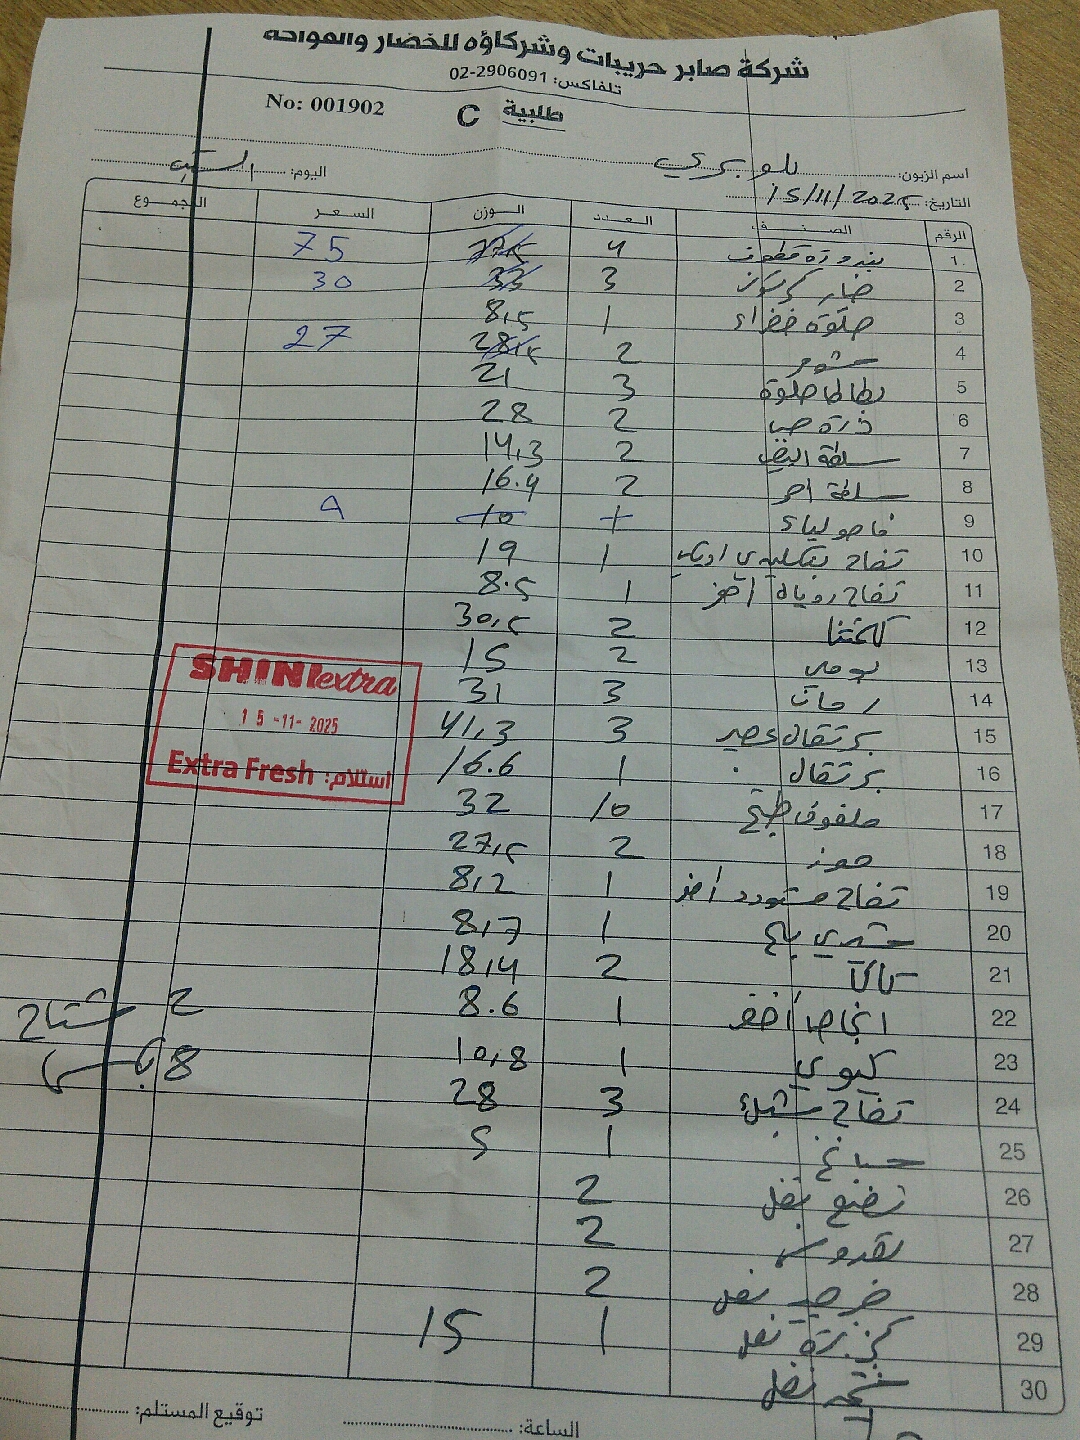 شركة صابر حريبات وشركاؤه للخضار والفواكه
تلفاكس: 02-2906091
طلبية C No: 001902
اسم الزبون:
اليوم: السبت
التاريخ: 15/11/2025
الرقم الصنف العدد الوزن السعر المجموع
1. بندورة قطوف 4 77,5 75
2 خيار 3 33 30
3 حلوة خضراء 1 8,5
4 شومر 2 28,5 27
5 بطاطا حلوة 3 21
6 ذرة حب 2 28
7 سلطة ابيض 2 14,3
8 سلطة احمر 2 16.4
9 فاصولياء 1 10 9
10 تفاح 1 19
11 تفاح اخضر 1 8.5
12 كلمنتينا 2 30,5
13 بوملي 2 15
14 رمان 3 31
15 برتقال عصير 3 41,3
16 برتقال 1 16.6
17 ملفوف طبخ 10 32
18 موز 2 27,5
19 تفاح مستورد أخضر 1 8,2
20 1 8,7
21 كاكا 2 18,4
22 انجاص أخضر 1 8.6
23 كيوي 1 10,8
24 تفاح 3 28
25 سبانخ 1 5
26 نعنع بغل 2
27 بقدونس 2
28 بغل 2
29 كزبرة بغل 1 15
30 بغل
SHINI extra
15-11-2025
Extra Fresh استلام:
2 مشتاح
8
الساعة:
توقيع المستلم: